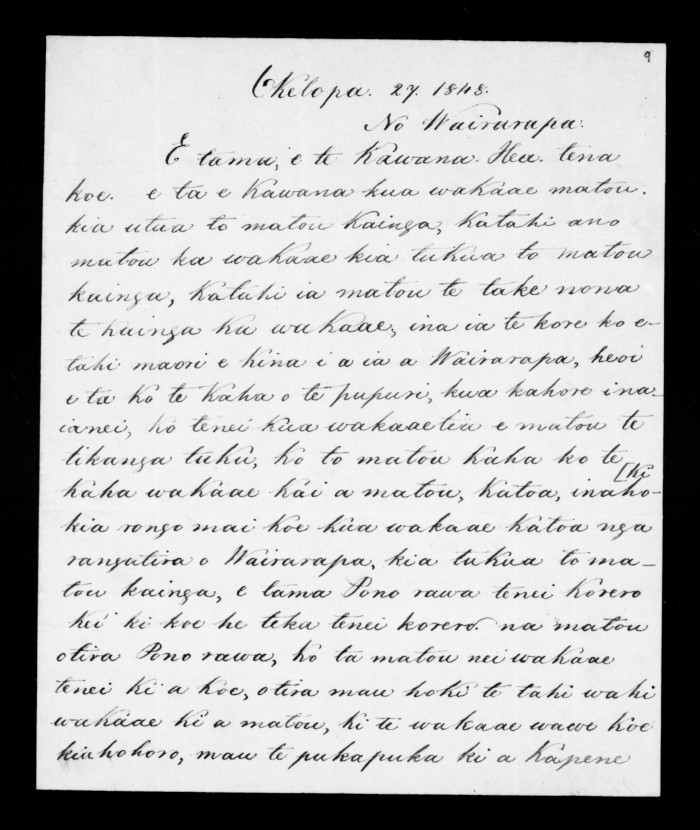 9
Okelopa. 27. 1848.
No Wairarapa.
E tama, e te Kawana. Hea. tena
koe. e ta e Kawana kua wakaae matou.
kia utua to matou Kainga, Katahi ano
matou ka wakaae kia tukua to matou
kainga, Katahi ia matou te take nona
te kainga Ka wakaae, ina ia te kore ko e-
tahi maori e Kina i a ia a Wairarapa, heoi
e ta Ko te Kaha o te pupuri, kua kahore ina-
ianei, ko tenei Kua wakaaetia e matou te
tikanga tuku, Ko to matou Kaha ko te
[Ki
kaha wakaae kai a matou, Katoa, inaho-
kia rongo mai Koe kua wakaae Katoa nga
rangatira o Wairarapa, kia tukua to ma-
tou kainga, e tama Pono rawa tenei Korero
Kei ki koe he teka tenei korero. na matou
otira Pono rawa, ko ta matou nei wakaae
tenei Ki a Koe, otira mau hoki te tahi wahi
wakaae Ki a matou, Ki te wakaae wawe Koe
kia hohoro, mau te pukapuka ki a Kapene